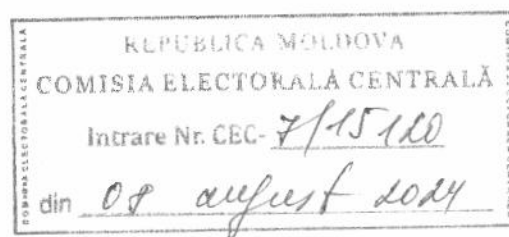 REPUBLICA MOLDOVA
COMISIA ELECTORALĂ CENTRALĂ
Intrare Nr. CEC- 7/15120
din 08 august 2024